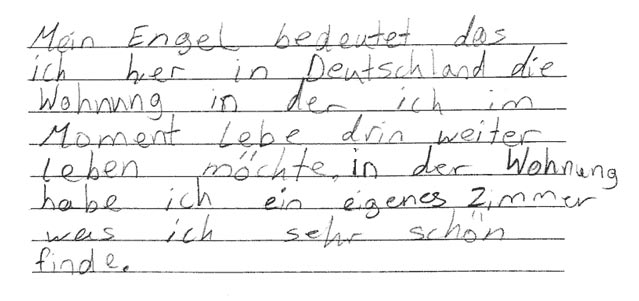 Mein Engel bedeutet das
ich hier in Deutschland die
Wohnung in der ich im
Moment Lebe drin weiter
Leben möchte, in der Wohnung
habe ich ein eigenes Zimmer
was ich sehr schön
finde.